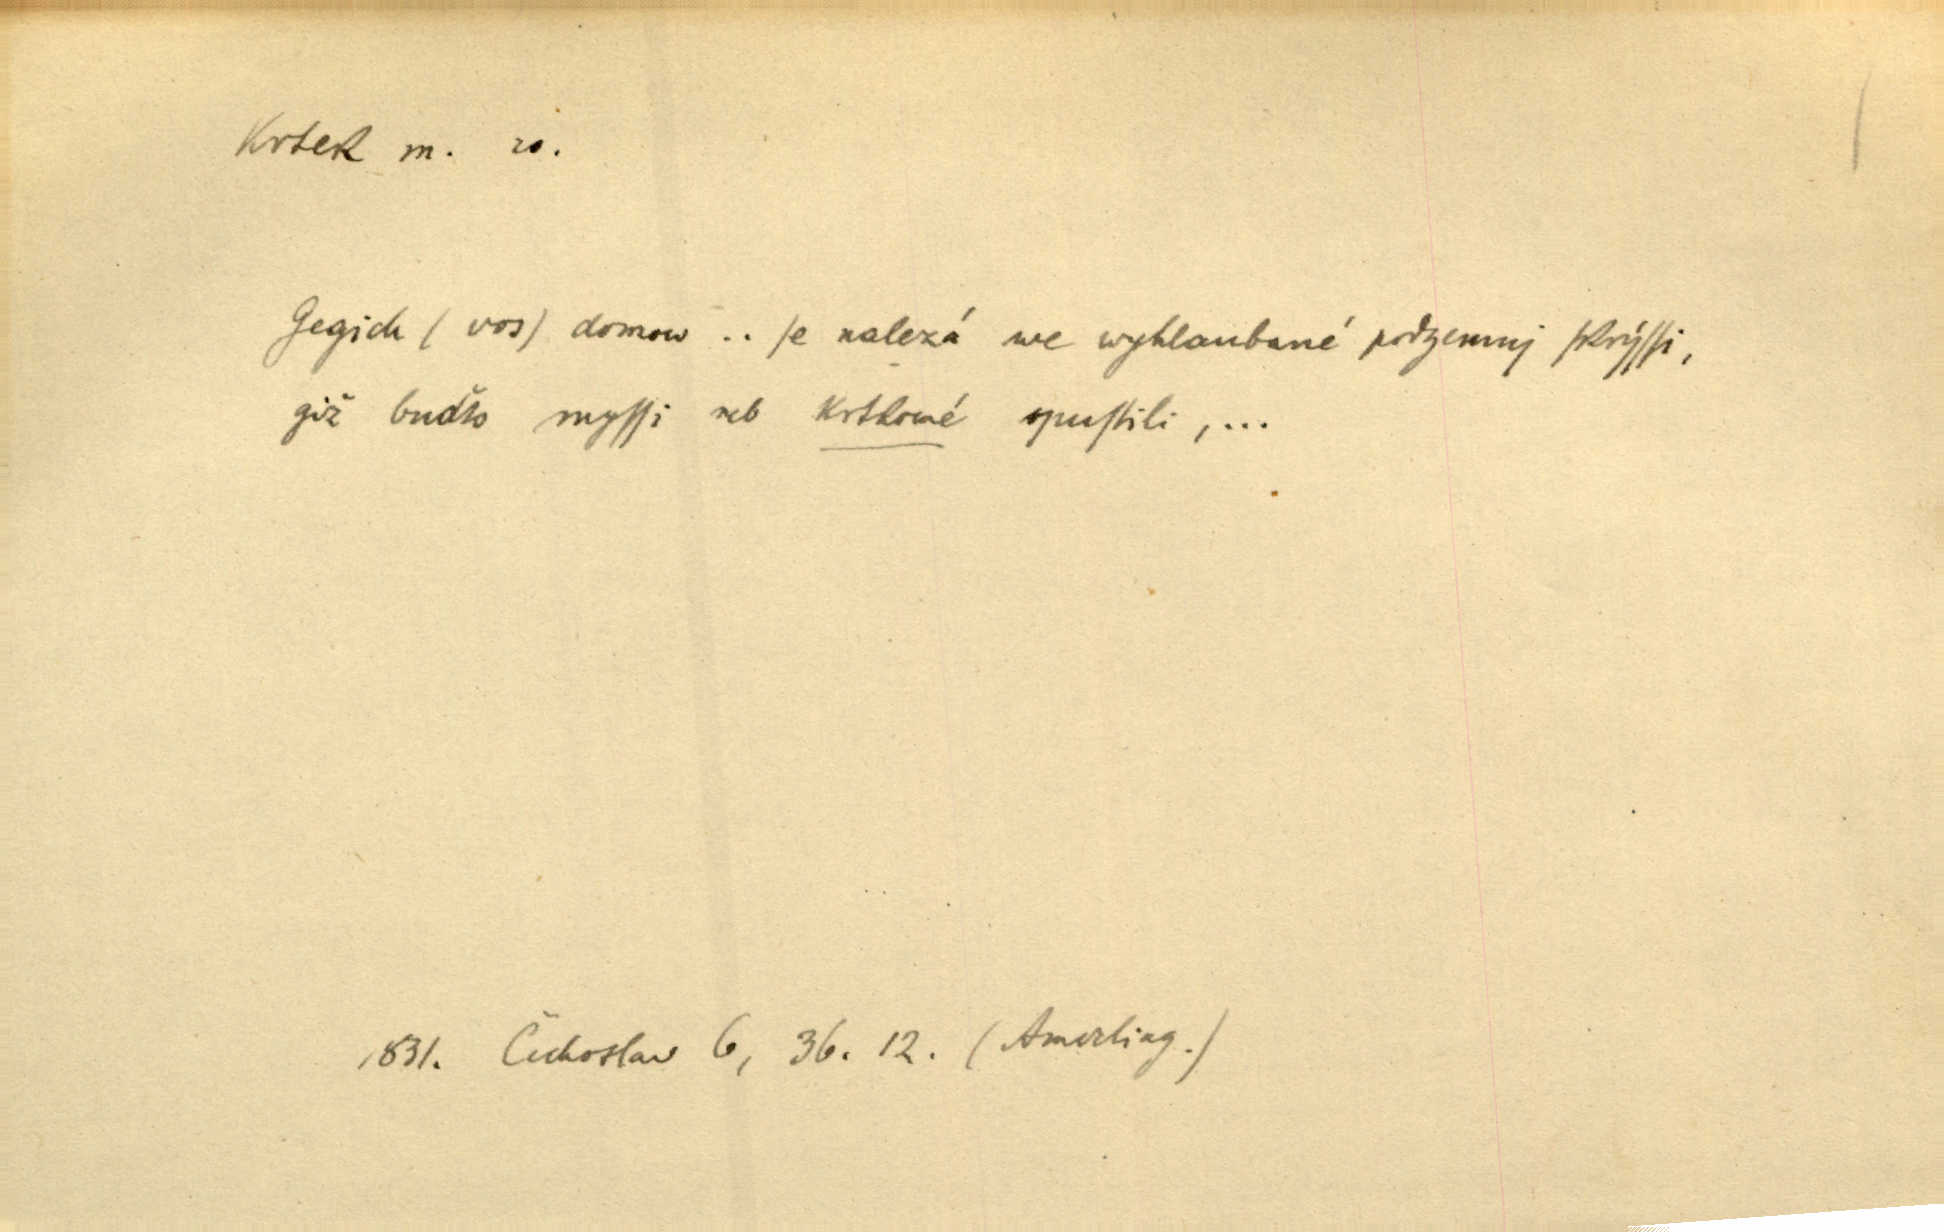 Krtek m. ž.
Gegich (vos) domow .. ſe nalezá we wyhlaubané podzemnj ſkrýſſi,
giž buďto myſſi neb krtkowé opuſtili , ...
1831. Čechoslav 6, 36. 12. (Amerling.)